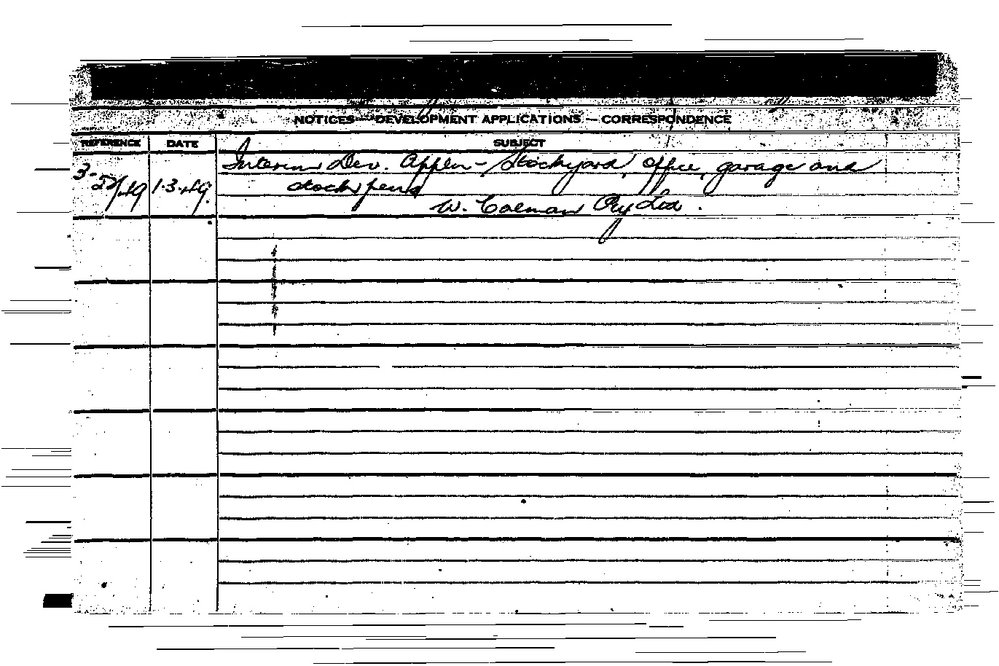 NOTICES — DEVELOPMENT APPLICATIONS — CORRESPONDENCE
REFERENCE DATE SUBJECT
Interim Dev. Appln - Stockyard, office, garage and
3-52/49 1.3.49. stock pens
W. Coleman Pty Ltd.